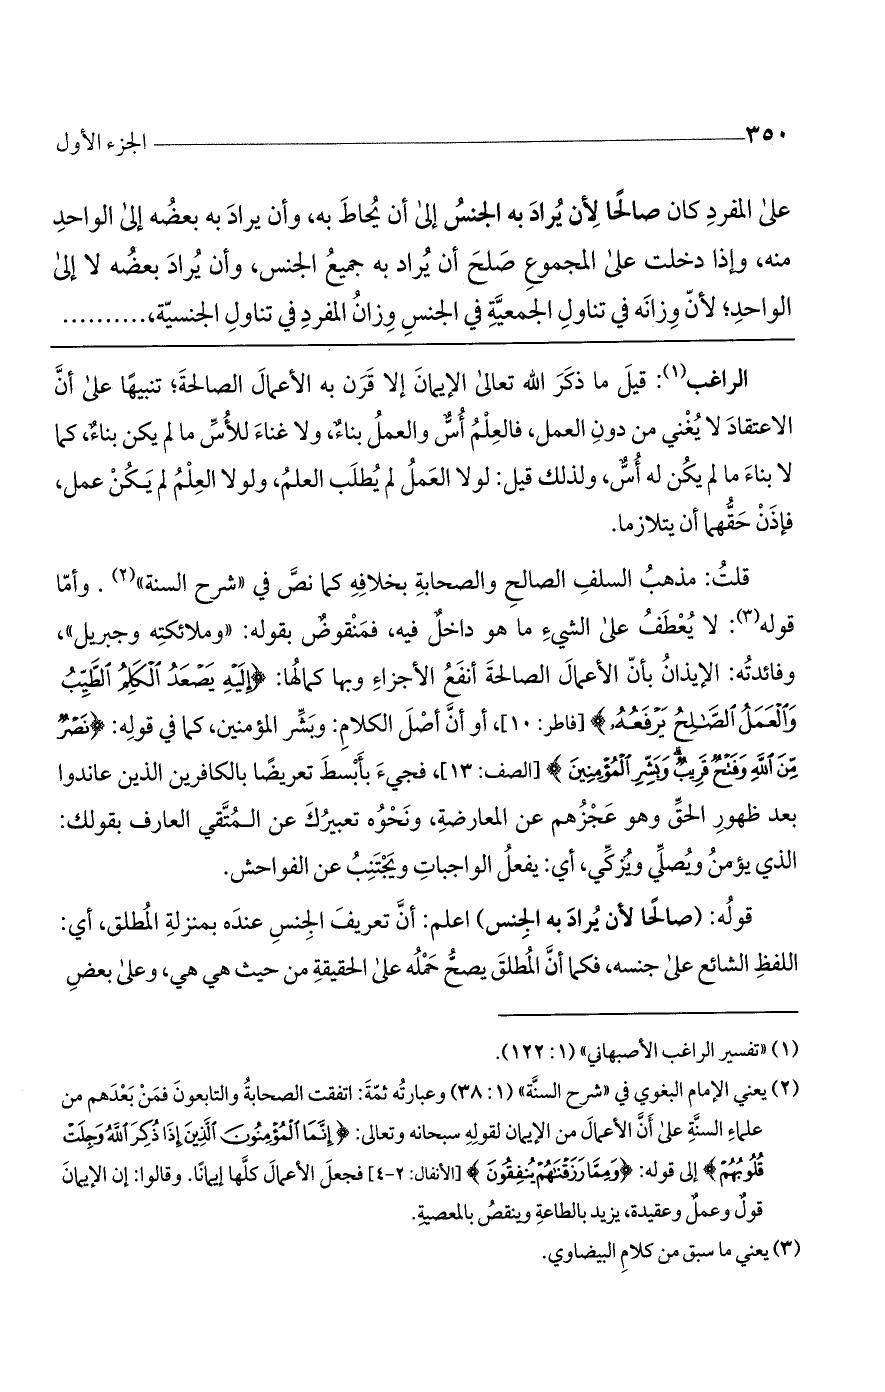 ٣٥٠ الجزء الأول
على المفردِ كان صالحًا لِأن يُرادَ به الجنسُ إلى أن يُحاطَ به، وأن يرادَ به بعضُه إلى الواحدِ
منه، وإذا دخلت على المجموعِ صَلحَ أن يُراد به جميعُ الجنس، وأن يُرادَ بعضُه لا إلى
الواحدِ؛ لأنّ وِزانَه في تناولِ الجَمعيَّةِ في الجنسِ وِزانُ المفردِ في تناولِ الجنسيّة،..........
الراغب(١): قيلَ ما ذكَرَ الله تعالى الإيمانَ إلا قَرَن به الأعمالَ الصالحةَ؛ تنبيهًا على أنَّ
الاعتقادَ لا يُغْني من دونِ العمل، فالعِلْمُ أُسٌّ والعملُ بناءٌ، ولا غناءَ للأُسِّ ما لم يكن بناءٌ، كما
لا بناءَ ما لم يكُن له أُسٌّ، ولذلك قيل: لولا العَملُ لم يُطلَب العلمُ، ولولا العِلْمُ لم يَكُنْ عمل،
فإذَنْ حَقُّهما أن يتلازما.
قلتُ: مذهبُ السلفِ الصالحِ والصحابةِ بخلافِهِ كما نصَّ في «شرح السنة»(٢). وأمّا
قوله(٣): لا يُعْطَفُ على الشيءِ ما هو داخلٌ فيه، فمَنْقوضٌ بقوله: «وملائكتِه وجبريل»،
وفائدتُه: الإيذانُ بأنّ الأعمالَ الصالحةَ أنفَعُ الأجزاءِ وبها كمالُها: ﴿إِلَيْهِ يَصْعَدُ ٱلْكَلِمُ ٱلطَّيِّبُ
وَٱلْعَمَلُ ٱلصَّٰلِحُ يَرْفَعُهُۥ﴾ [فاطر: ١٠]، أو أنَّ أصْلَ الكلامِ: وبَشِّر المؤمنين، كما في قولِه: ﴿نَصْرٌ
مِّنَ ٱللَّهِ وَفَتْحٌ قَرِيبٌ ۗ وَبَشِّرِ ٱلْمُؤْمِنِينَ﴾ [الصف: ١٣]، فجيءَ بأَبْسطَ تعريضًا بالكافرين الذين عاندوا
بعد ظهورِ الحقِّ وهو عَجْزُهم عن المعارضةِ، ونَحْوُه تعبيرُكَ عن المُتَّقي العارف بقولك:
الذي يؤمنُ ويُصلِّي ويُزكِّي، أي: يفعلُ الواجباتِ ويَجْتَنِبُ عن الفواحش.
قولُه: (صالحًا لأن يُرادَ به الجِنس) اعلم: أنَّ تعريفَ الجِنسِ عندَه بمنزلةِ المُطلق، أي:
اللفظِ الشائع على جنسه، فكما أنَّ المُطلقَ يصحُّ حَمْلُه على الحقيقةِ من حيث هي هي، وعلى بعضِ
(١) «تفسير الراغب الأصبهاني» (١: ١٢٢).
(٢) يعني الإمام البغوي في «شرح السنَّة» (١: ٣٨) وعبارتُه ثمّةَ: اتفقت الصحابةُ والتابعونَ فمَنْ بَعْدَهم من
علماءِ السنَّةِ على أَنَّ الأعمالَ من الإيمان لقولِهِ سبحانه وتعالى: ﴿إِنَّمَا ٱلْمُؤْمِنُونَ ٱلَّذِينَ إِذَا ذُكِرَ ٱللَّهُ وَجِلَتْ
قُلُوبُهُمْ﴾ إلى قوله: ﴿وَمِمَّا رَزَقْنَٰهُمْ يُنفِقُونَ﴾ [الأنفال: ٢-٤] فجعلَ الأعمالَ كلَّها إيمانًا. وقالوا: إن الإيمانَ
قولٌ وعملٌ وعقيدة، يزيد بالطاعةِ وينقصُ بالمعصيةِ.
(٣) يعني ما سبق من كلامِ البيضاوي.